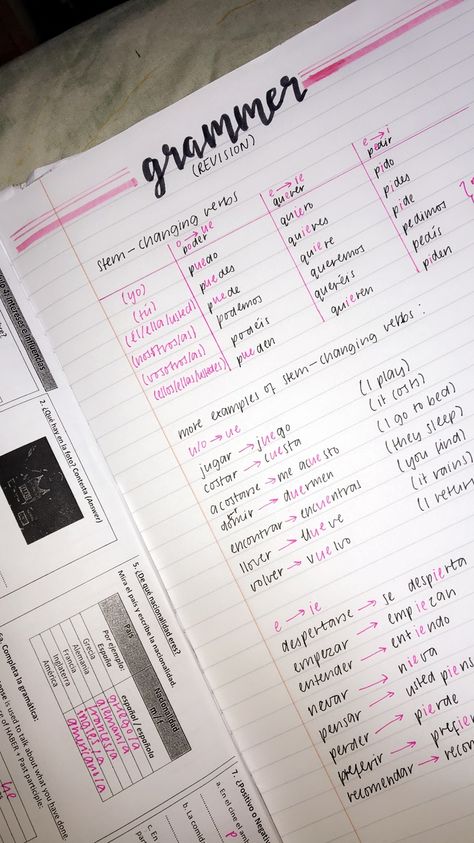 grammer
(REVISION)
stem-changing verbs
o → ue e → ie e → i
poder querer pedir
(yo) puedo quiero pido
(tú) puedes quieres pides
(él/ella/usted) puede quiere pide
(nosotros/as) podemos queremos pedimos
(vosotros/as) podéis queréis pedís
(ellos/ellas/ustedes) pueden quieren piden
more examples of stem-changing verbs:
u/o → ue
jugar → juego (I play)
costar → cuesta (it costs)
acostarse → me acuesto (I go to bed)
dormir → duermen (they sleep)
encontrar → encuentras (you find)
llover → llueve (it rains)
volver → vuelvo (I return
e → ie
despertarse → se despierta
empezar → empiezan
entender → entiendo
nevar → nieva
pensar → usted piens
perder → pierde
preferir → prefier
recomendar → recom
influencers
2. ¿Qué hay en la foto? Contesta (Answer)
5. ¿De qué nacionalidad eres?
Mira el país y escribe la nacionalidad.
País Nacionalidad
m / f
Por ejemplo:
España español / española
Grecia griego/a
Alemania alemán/a
Francia francés/a
Inglaterra inglés/a
América americano/a
6a. Completa la gramática:
is used to talk about what you have done.
of HABER + Past participle:
he
7. ¿Positivo o Negativo
a. En el cine el amb
P
b. La comida
c. En